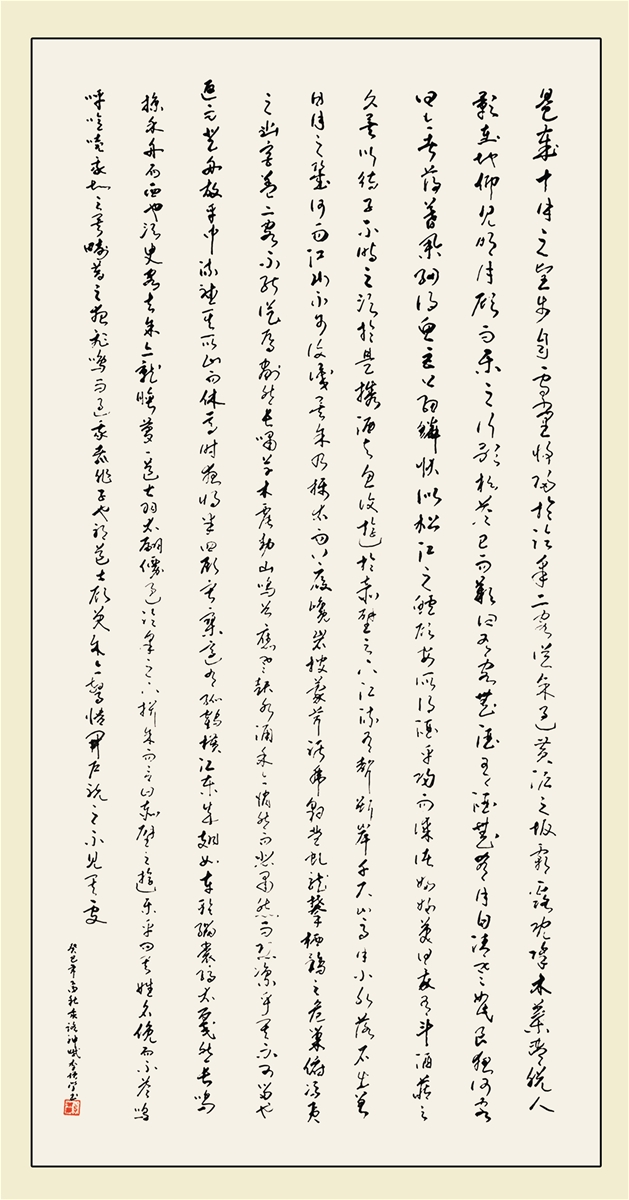 是歲十月之望步自雪堂將歸於臨皋二客從余過黃泥之坂霜露既降木葉盡脫人
影在地仰見明月顧而樂之行歌相答已而歎曰有客無酒有酒無肴月白風清如此良夜何客
曰今者薄暮舉網得魚巨口細鱗狀似松江之鱸顧安所得酒乎歸而謀諸婦婦曰我有斗酒藏之
久矣以待子不時之須於是攜酒與魚復遊於赤壁之下江流有聲斷岸千尺山高月小水落石出曾
日月之幾何而江山不可復識矣余乃攝衣而上履巉岩披蒙茸踞虎豹登虬龍攀栖鶻之危巢俯馮夷
之幽宮蓋二客不能從焉劃然長嘯草木震動山鳴谷應風起水涌余亦悄然而悲肅然而恐凜乎其不可留也
返而登舟放乎中流聽其所止而休焉時夜將半四顧寂寥適有孤鶴橫江東來翅如車輪玄裳縞衣戛然長鳴
掠余舟而西也須臾客去余亦就睡夢一道士羽衣翩僊過臨皋之下揖余而言曰赤壁之遊樂乎問其姓名俛而不答嗚
呼噫嘻我知之矣疇昔之夜飛鳴而過我者非子也耶道士顧笑余亦驚悟開戶視之不見其處
癸巳年